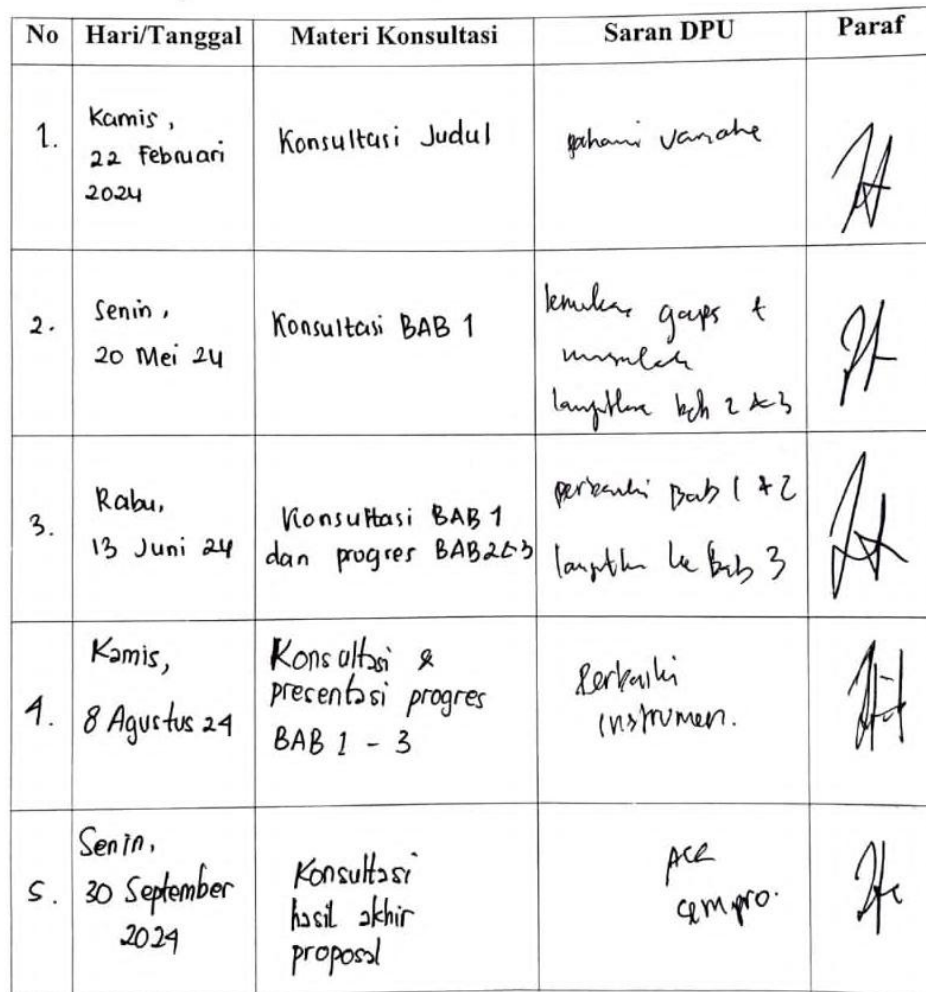 No Hari/Tanggal Materi Konsultasi Saran DPU Paraf
1. Kamis, 22 Februari 2024 Konsultasi Judul pahami
2. Senin, 20 Mei 24 Konsultasi BAB 1 gaps
3. Rabu, 13 Juni 24 Konsultasi BAB 1 dan progres BAB 2&3 perbaiki Bab 1 & 2 ke Bab 3
4. Kamis, 8 Agustus 24 Konsultasi & presentasi progres BAB 1 - 3 Perbaiki instrumen.
5. Senin, 30 September 2024 Konsultasi hasil akhir proposal ACC sempro.